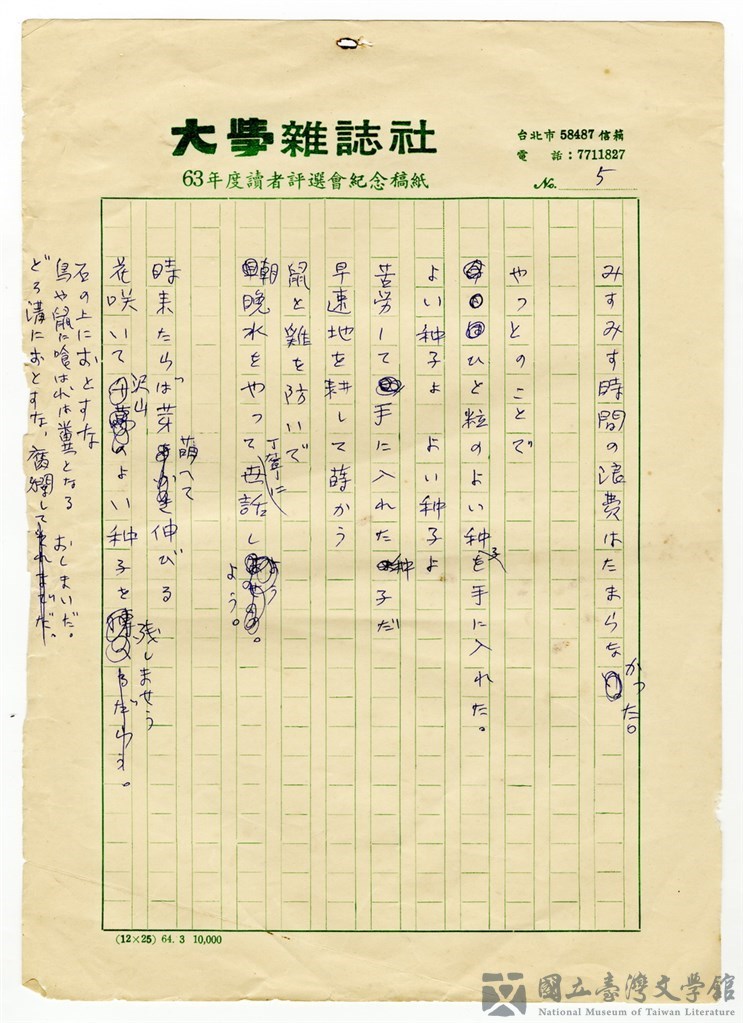 大學雜誌社
63年度讀者評選會紀念稿紙
台北市 58487 信箱
電話：7711827
No. 5
みすみす時間の浪費はたまらなかった。
やっとのことで
ひと粒のよい種子を手に入れた。
よい種子よ よい種子よ
苦労して手に入れた種子だ
早速地を耕して蒔かう
鼠と雞を防いで
朝晩水をやって丁寧に世話しよう。
時来たらば芽萌へて伸びる
花咲いて沢山のよい種子を残しませう
石の上におとすな
鳥や鼠に喰はれば糞となる おしまいだ。
どろ溝におとすな、腐爛してそれまでだ。
(12×25) 64. 3 10,000
國立臺灣文學館
National Museum of Taiwan Literature